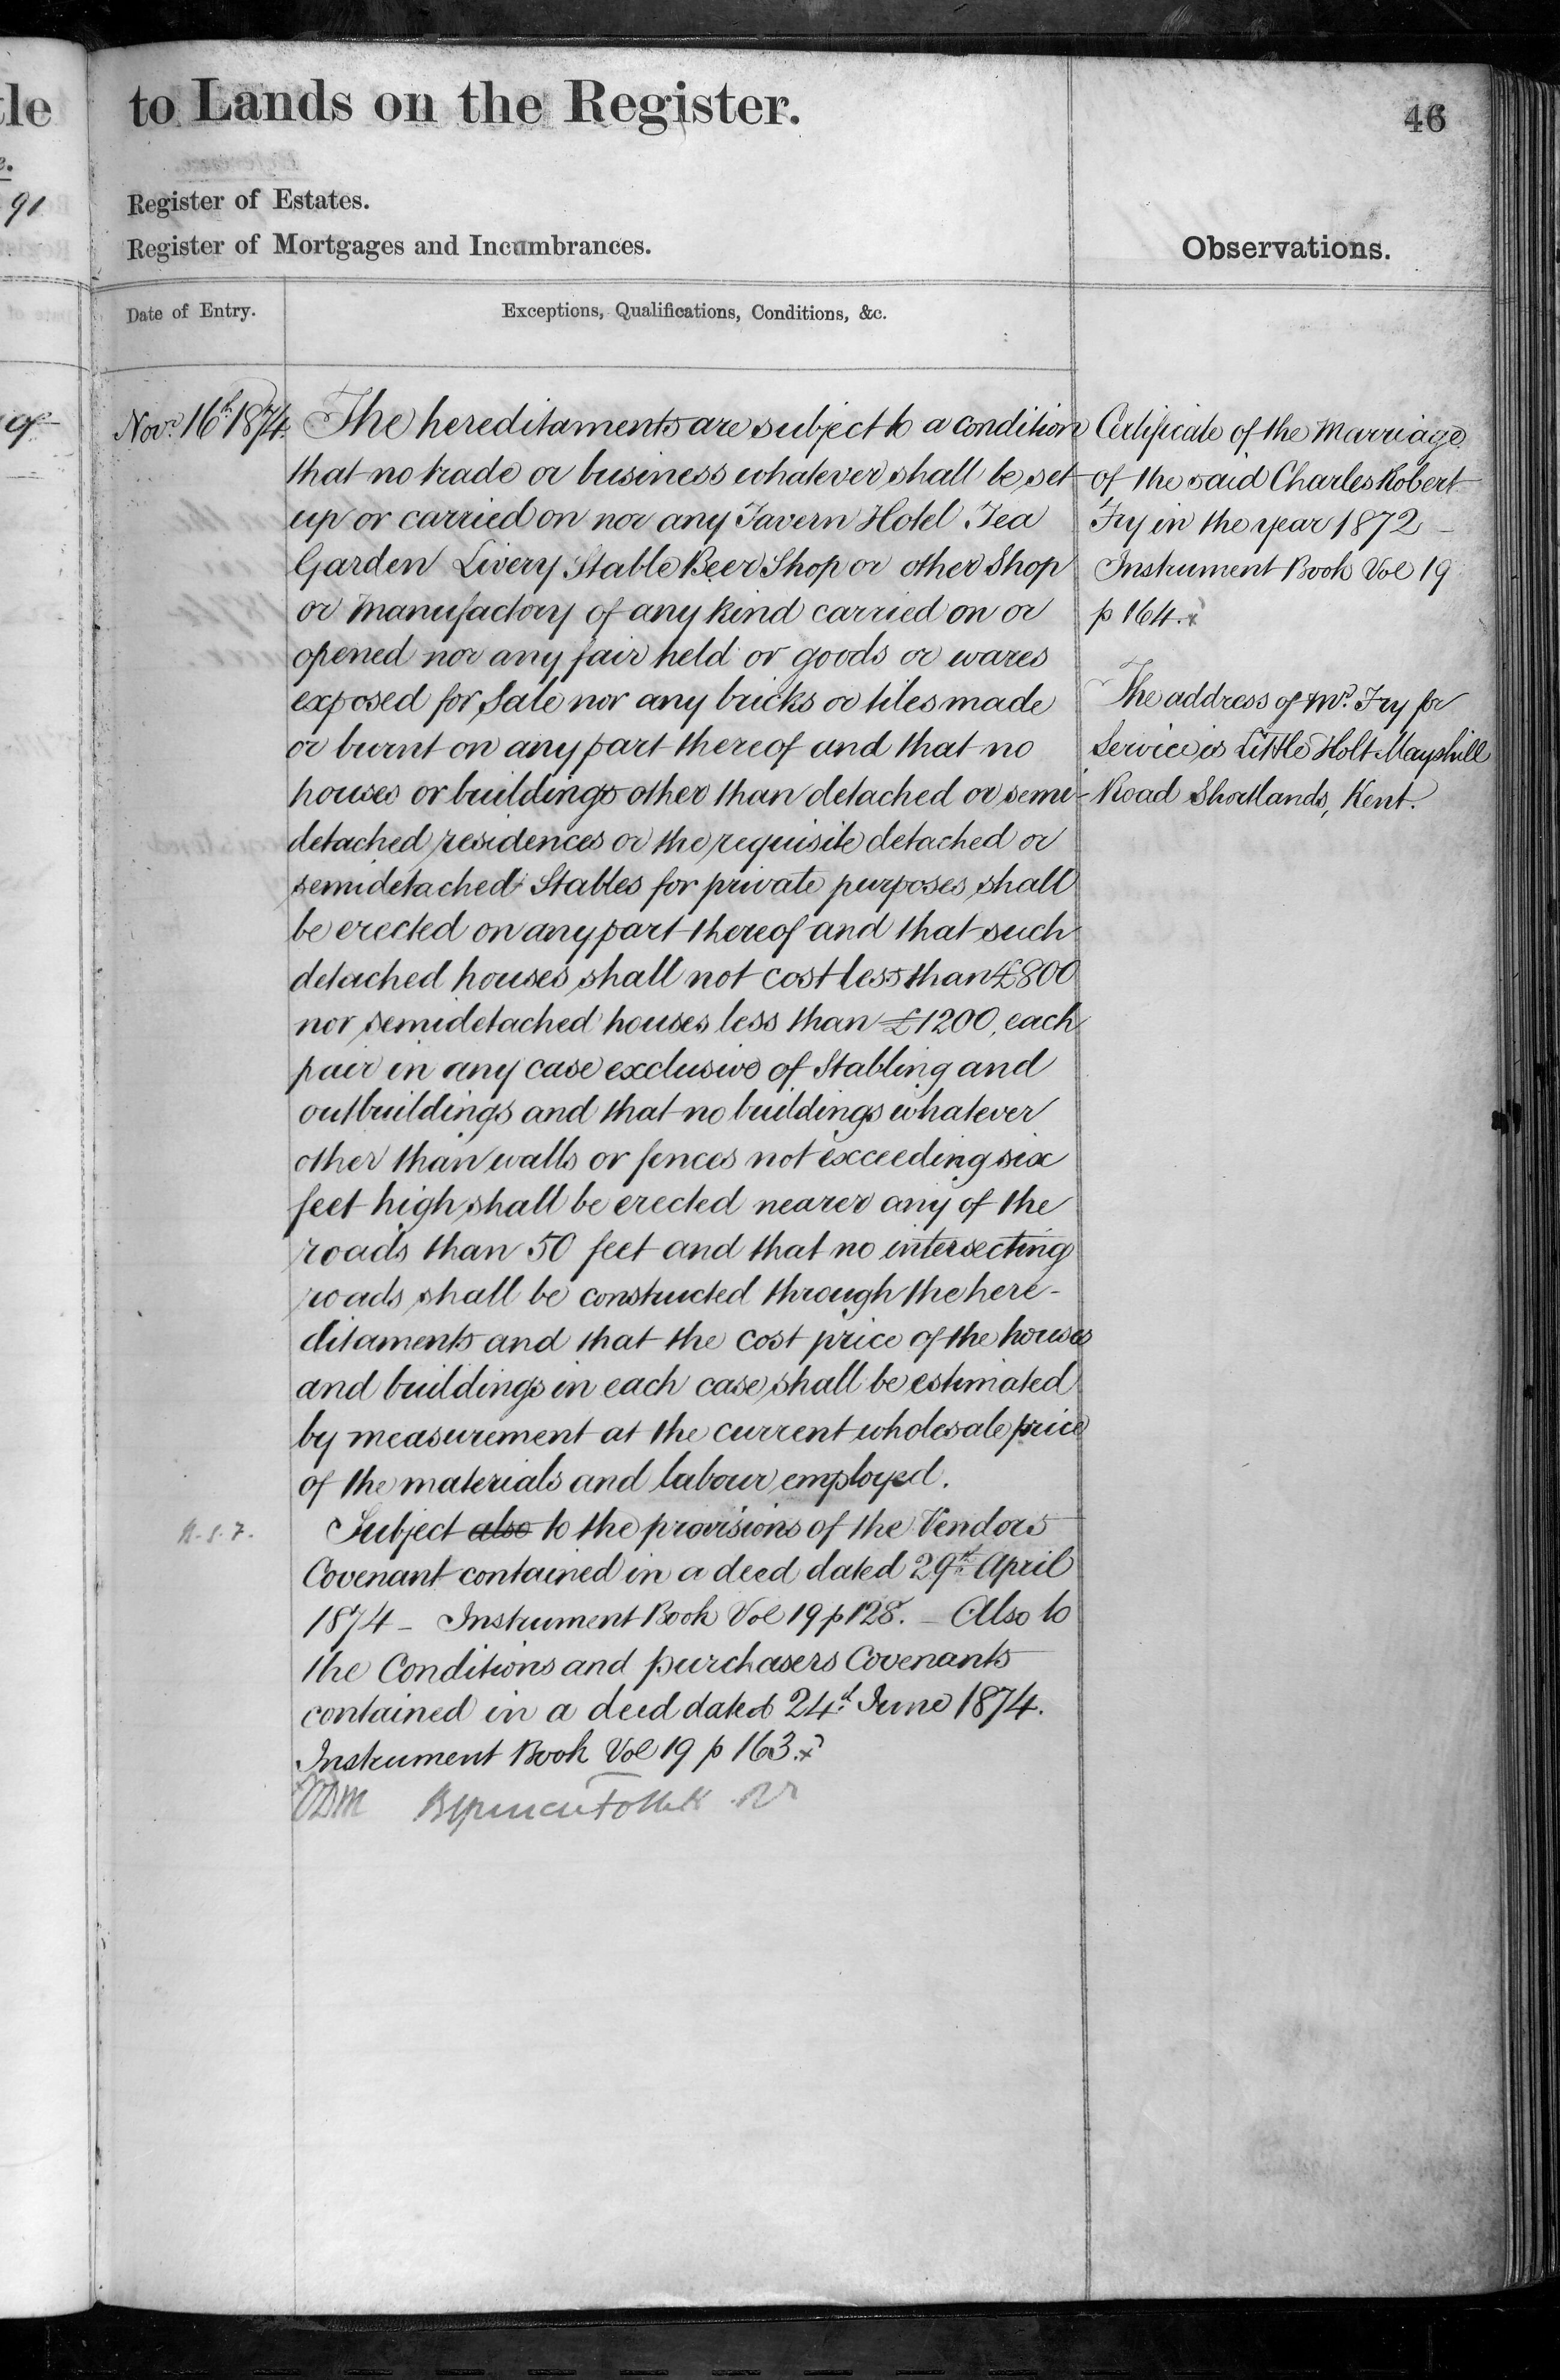 tle
to Lands on the Register.
46
91
Register of Estates.
Register of Mortgages and Incumbrances.
Observations.
Date of Entry.
Exceptions, Qualifications, Conditions, &c.
of
Novr. 16th 1874.
The hereditaments are subject to a condition
that no trade or business whatever shall be set
up or carried on nor any Tavern Hotel Tea
Garden Livery Stable Beer Shop or other Shop
or Manufactory of any kind carried on or
opened nor any fair held or goods or wares
exposed for Sale nor any bricks or tiles made
or burnt on any part thereof and that no
houses or buildings other than detached or semi-
detached residences or the requisite detached or
semidetached Stables for private purposes shall
be erected on any part thereof and that such
detached houses shall not cost less than £800
nor semidetached houses less than £1200, each
pair in any case exclusive of Stabling and
outbuildings and that no buildings whatever
other than walls or fences not exceeding six
feet high shall be erected nearer any of the
roads than 50 feet and that no intersecting
roads shall be constructed through the here-
ditaments and that the cost price of the houses
and buildings in each case shall be estimated
by measurement at the current wholesale price
of the materials and labour employed.
Subject also to the provisions of the Vendors
Covenant contained in a deed dated 29th April
1874 - Instrument Book Vol 19 p 128. - Also to
the Conditions and purchasers Covenants
contained in a deed dated 24th June 1874.
Instrument Book Vol 19 p 163.
Certificate of the Marriage
of the said Charles Robert
Fry in the year 1872 -
Instrument Book Vol 19
p 164.
The address of Mr. Fry for
Service is Little Holt Mayshill
Road Shortlands, Kent.